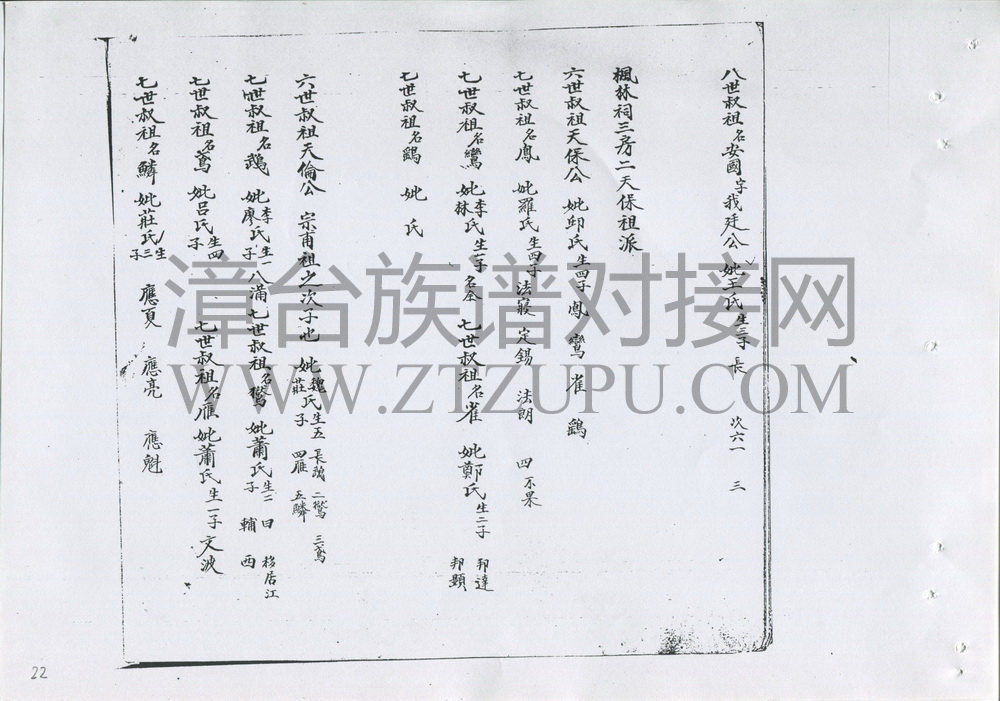 八世叔祖名安國字我廷公 妣王氏生三子 長 次六一 三
楓林祠三房二天保祖派
六世叔祖天保公 妣邱氏生四子 鳳 鸞 雀 鷂
七世叔祖名鳳 妣羅氏生四子 法寢 定錫 法朗 四不果
七世叔祖名鸞 妣李林氏生一子名全 七世叔祖名雀 妣鄭氏生二子 邦達 邦顯
七世叔祖名鷂 妣 氏
六世叔祖天倫公 宗甫祖之次子也 妣魏莊氏生五子 長鵡 二鷟 三鳶 四雁 五鱗
七世叔祖名鵡 妣李廖氏生一子八滿 七世叔祖名鷟 妣蕭氏生二子 曰輔 移居江西
七世叔祖名鳶 妣呂氏生四子 七世叔祖名雁 妣蕭氏生一子文波
七世叔祖名鱗 妣莊氏生三子 應夏 應亮 應魁
漳台族谱对接网
WWW.ZTZUPU.COM
22